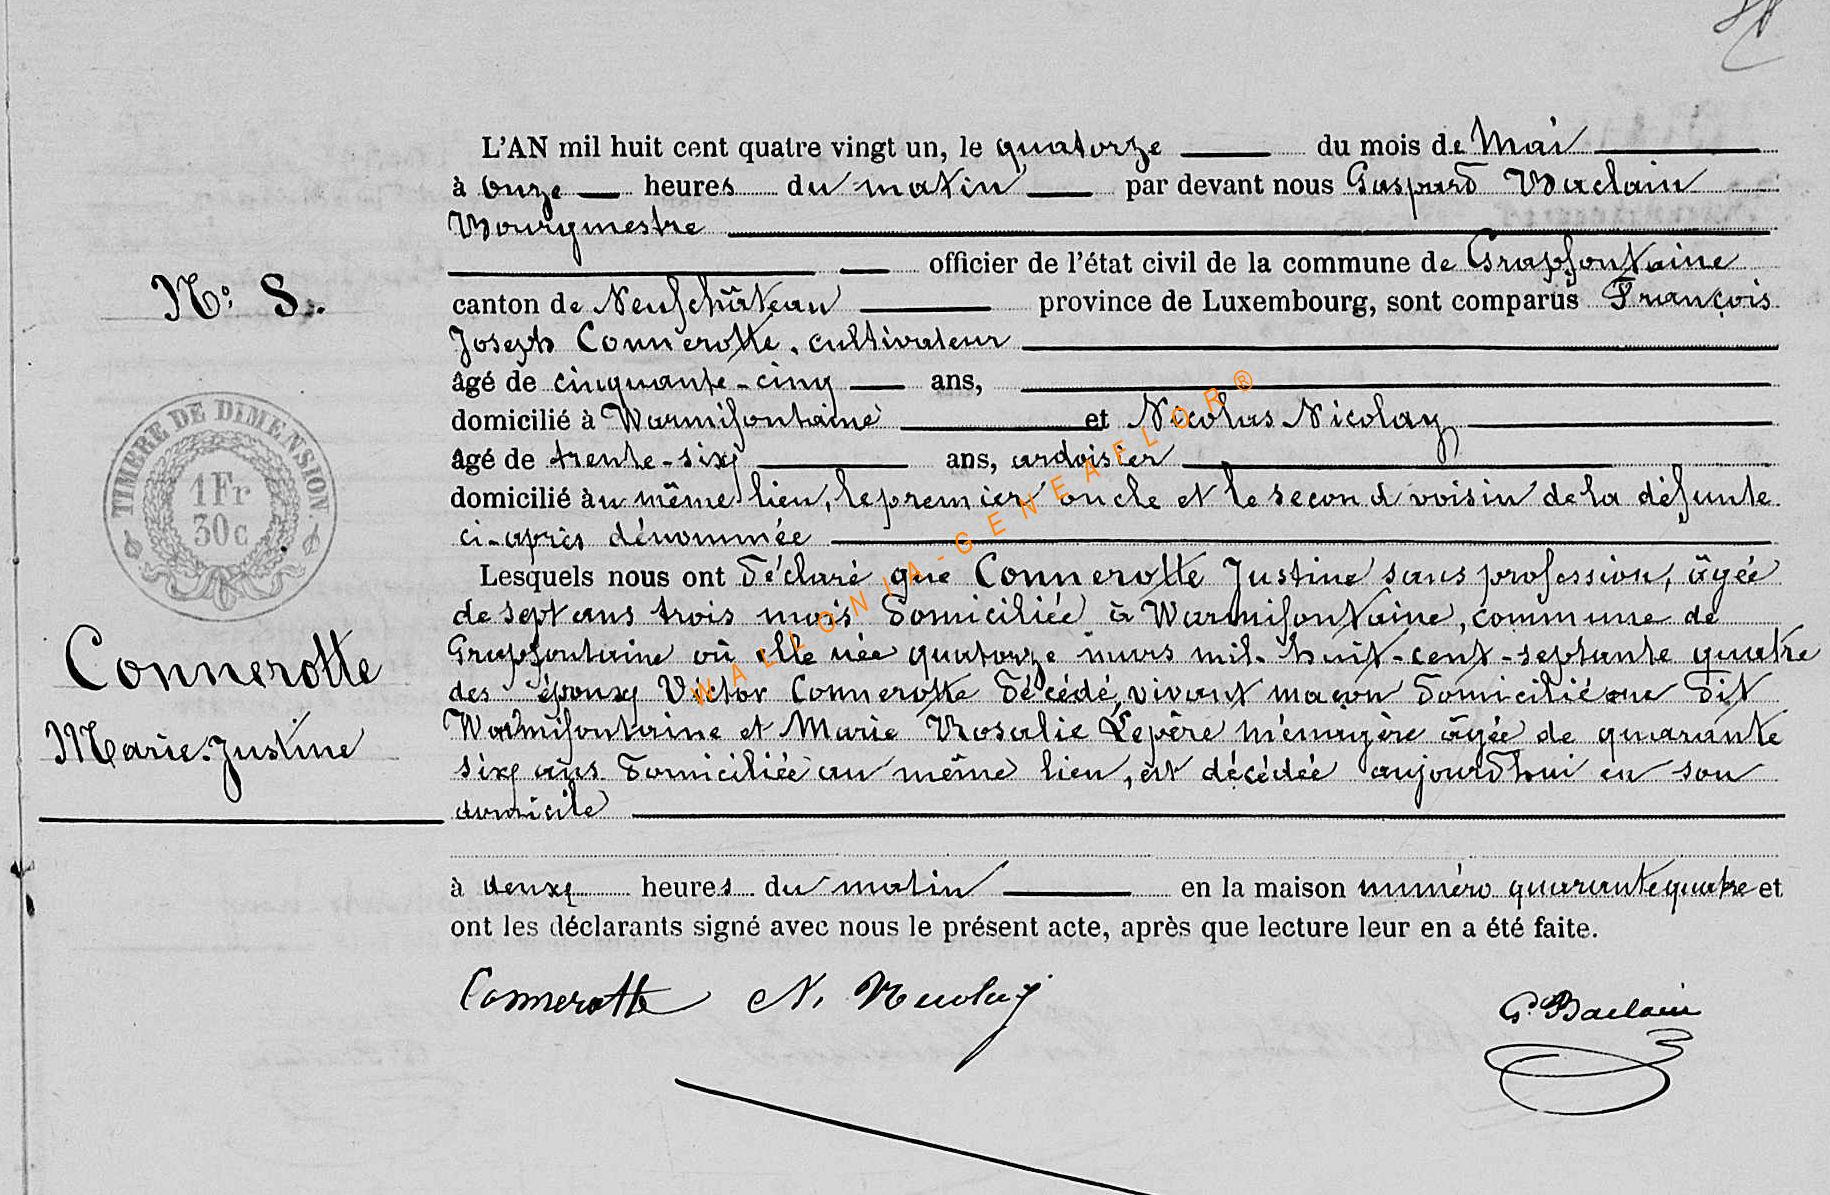 L'AN mil huit cent quatre vingt un, le quatorze du mois de Mai
à onze heures du matin par devant nous Gaspard Baclain
Bourgmestre
officier de l'état civil de la commune de Grapfontaine
N.° 8.
canton de Neufchâteau province de Luxembourg, sont comparus François
Joseph Connerotte, cultivateur
âgé de cinquante-cinq ans,
domicilié à Warmifontaine et Nicolas Nicolay
âgé de trente-six ans, ardoisier
domicilié au même lieu, le premier oncle et le second voisin de la défunte
ci-après dénommée
TIMBRE DE DIMENSION
1Fr
30c
Lesquels nous ont déclaré que Connerotte Justine sans profession, âgée
de sept ans trois mois domiciliée à Warmifontaine, commune de
Grapfontaine où elle née quatorze mars mil-huit-cent-septante quatre
des époux Victor Connerotte décédé, vivant maçon domicilié au dit
Warmifontaine et Marie Rosalie Lepère ménagère âgée de quarante
six ans domiciliée au même lieu, est décédée aujourd'hui en son
domicile
Connerotte
Marie-Justine
à deux heures du matin en la maison numéro quarante quatre et
ont les déclarants signé avec nous le présent acte, après que lecture leur en a été faite.
Connerotte N. Nicolay G. Baclain
WALLONIA-GENEAFLOR®